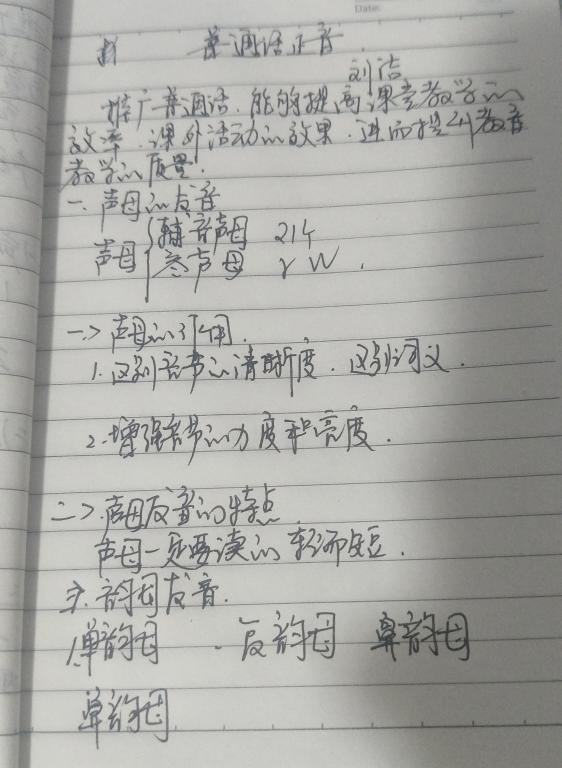 Date:
普通话正音
刘洁
推广普通话.能够提高课堂教学的
效率.课外活动的效果.进而提升教育
教学的质量.
一.声母的发音
声母 辅音声母 21个
零声母 y W.
一>声母的作用.
1.区别音节的清晰度.区别词义.
2.增强音节的力度和亮度.
二>.声母发音的特点.
声母一定要读的轻而短.
韵母发音.
1.单韵母 . 韵母 单韵母
单韵母